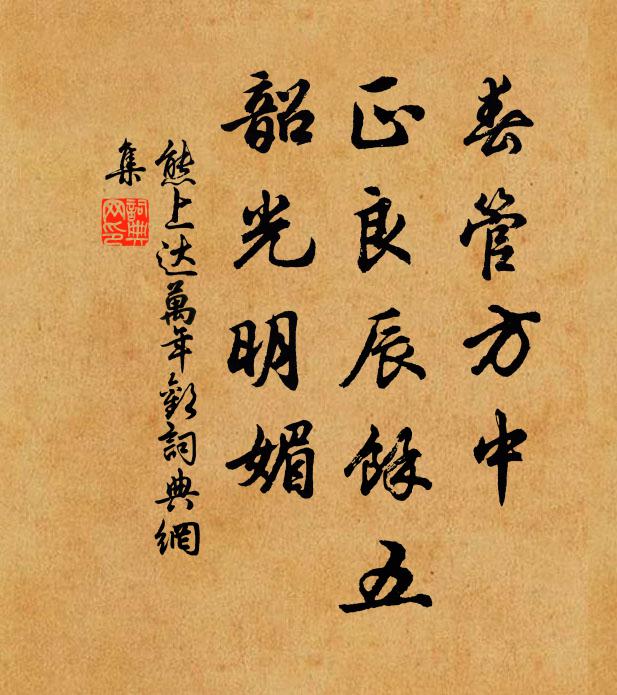 春管方中
正良辰餘五
韶光明媚
熊上达萬年歡詞典網
集
詞典
网印